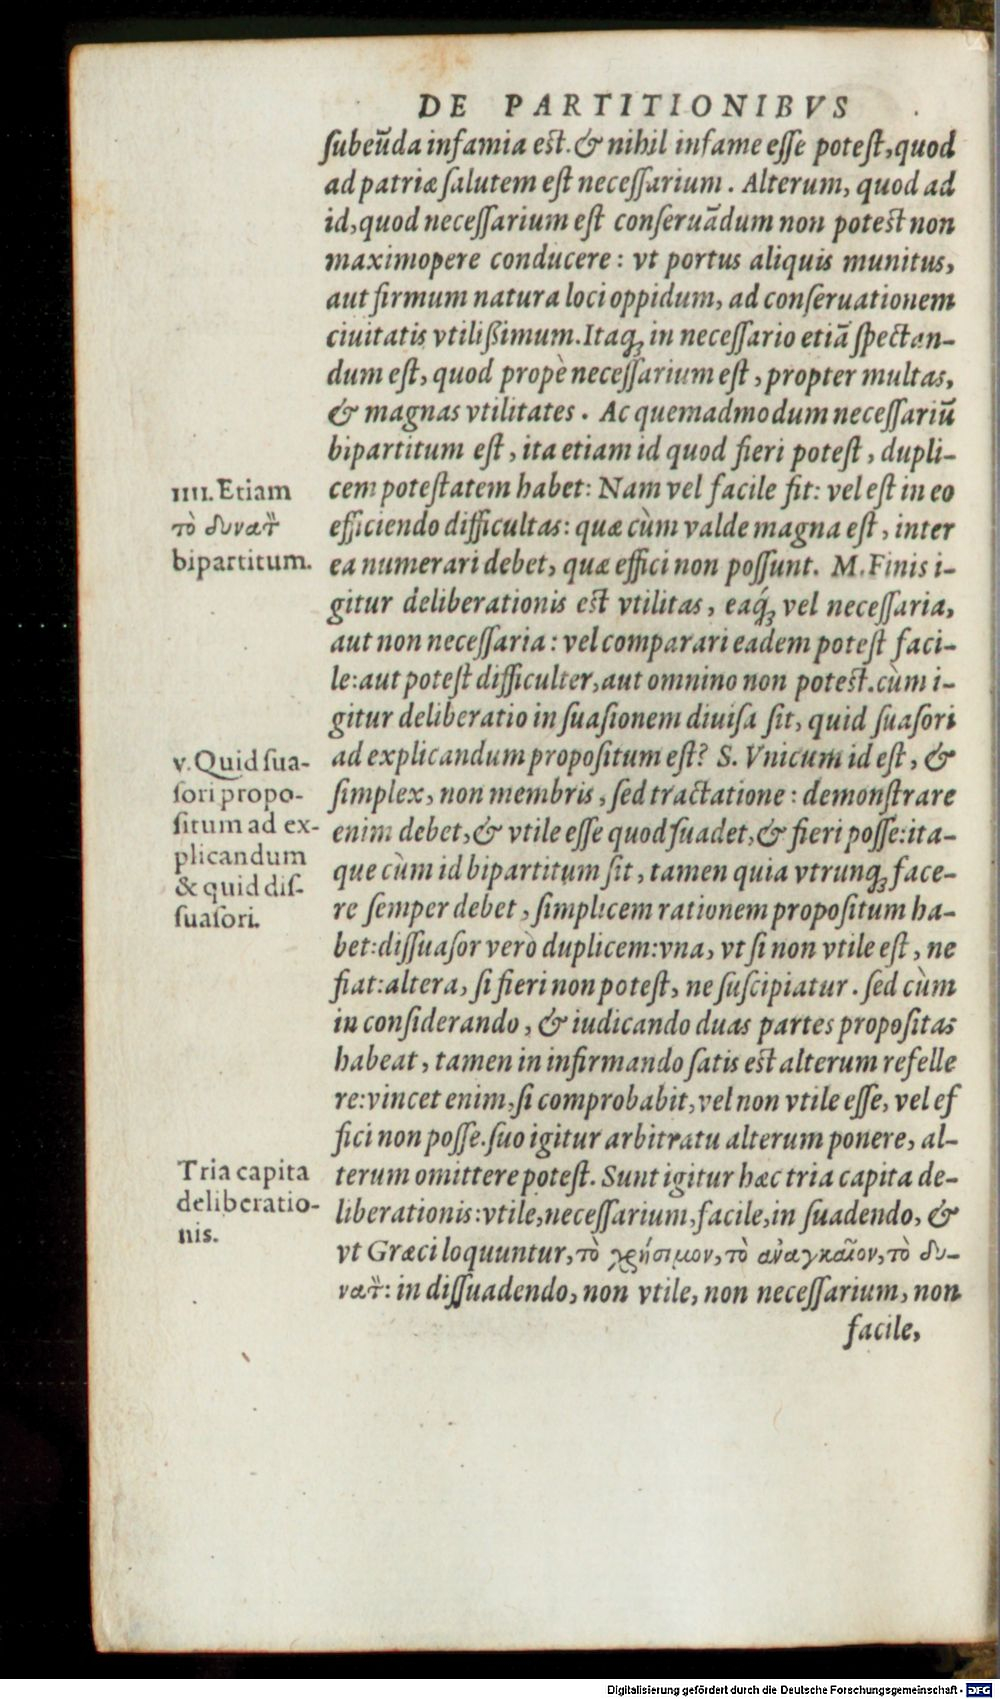 DE PARTITIONIBVS
ſubeūda infamia est. & nihil infame eſſe poteſt, quod
ad patriæ ſalutem eſt neceſſarium. Alterum, quod ad
id, quod neceſſarium eſt conſeruādum non potest non
maximopere conducere: vt portus aliquis munitus,
aut firmum natura loci oppidum, ad conſeruationem
ciuitatis vtilißimum. Itaq; in neceſſario etiā ſpectan-
dum eſt, quod propè neceſſarium eſt, propter multas,
& magnas vtilitates. Ac quemadmodum neceſſariū
bipartitum eſt, ita etiam id quod fieri poteſt, dupli-
cem poteſtatem habet: Nam vel facile fit: vel est in eo
efficiendo difficultas: quæ cùm valde magna eſt, inter
ea numerari debet, quæ effici non poſſunt. M. Finis i-
gitur deliberationis est vtilitas, eaq́; vel neceſſaria,
aut non neceſſaria: vel comparari eadem poteſt faci-
le: aut poteſt difficulter, aut omnino non potest. cùm i-
gitur deliberatio in ſuaſionem diuiſa ſit, quid ſuaſori
ad explicandum propoſitum eſt? S. Vnicum id eſt, &
ſimplex, non membris, ſed tractatione: demonſtrare
enim debet, & vtile eſſe quod ſuadet, & fieri poſſe: ita-
que cùm id bipartitum ſit, tamen quia vtrunq; face-
re ſemper debet, ſimplicem rationem propoſitum ha-
bet: diſſuaſor verò duplicem: vna, vt ſi non vtile eſt, ne
fiat: altera, ſi fieri non poteſt, ne ſuſcipiatur. ſed cùm
in conſiderando, & iudicando duas partes propoſitas
habeat, tamen in infirmando ſatis est alterum refelle
re: vincet enim, ſi comprobabit, vel non vtile eſſe, vel ef
fici non poſſe. ſuo igitur arbitratu alterum ponere, al-
terum omittere poteſt. Sunt igitur hæc tria capita de-
liberationis: vtile, neceſſarium, facile, in ſuadendo, &
vt Græci loquuntur, τὸ χρήσιμον, τὸ ἀναγκαῖον, τὸ δυ-
νατὸν: in diſſuadendo, non vtile, non neceſſarium, non
facile,
IIII. Etiam
τὸ δυνατὸν
bipartitum.
v. Quid ſua-
ſori propo-
ſitum ad ex-
plicandum
& quid diſ-
ſuaſori.
Tria capita
deliberatio-
nis.
Digitalisierung gefördert durch die Deutsche Forschungsgemeinschaft - DFG